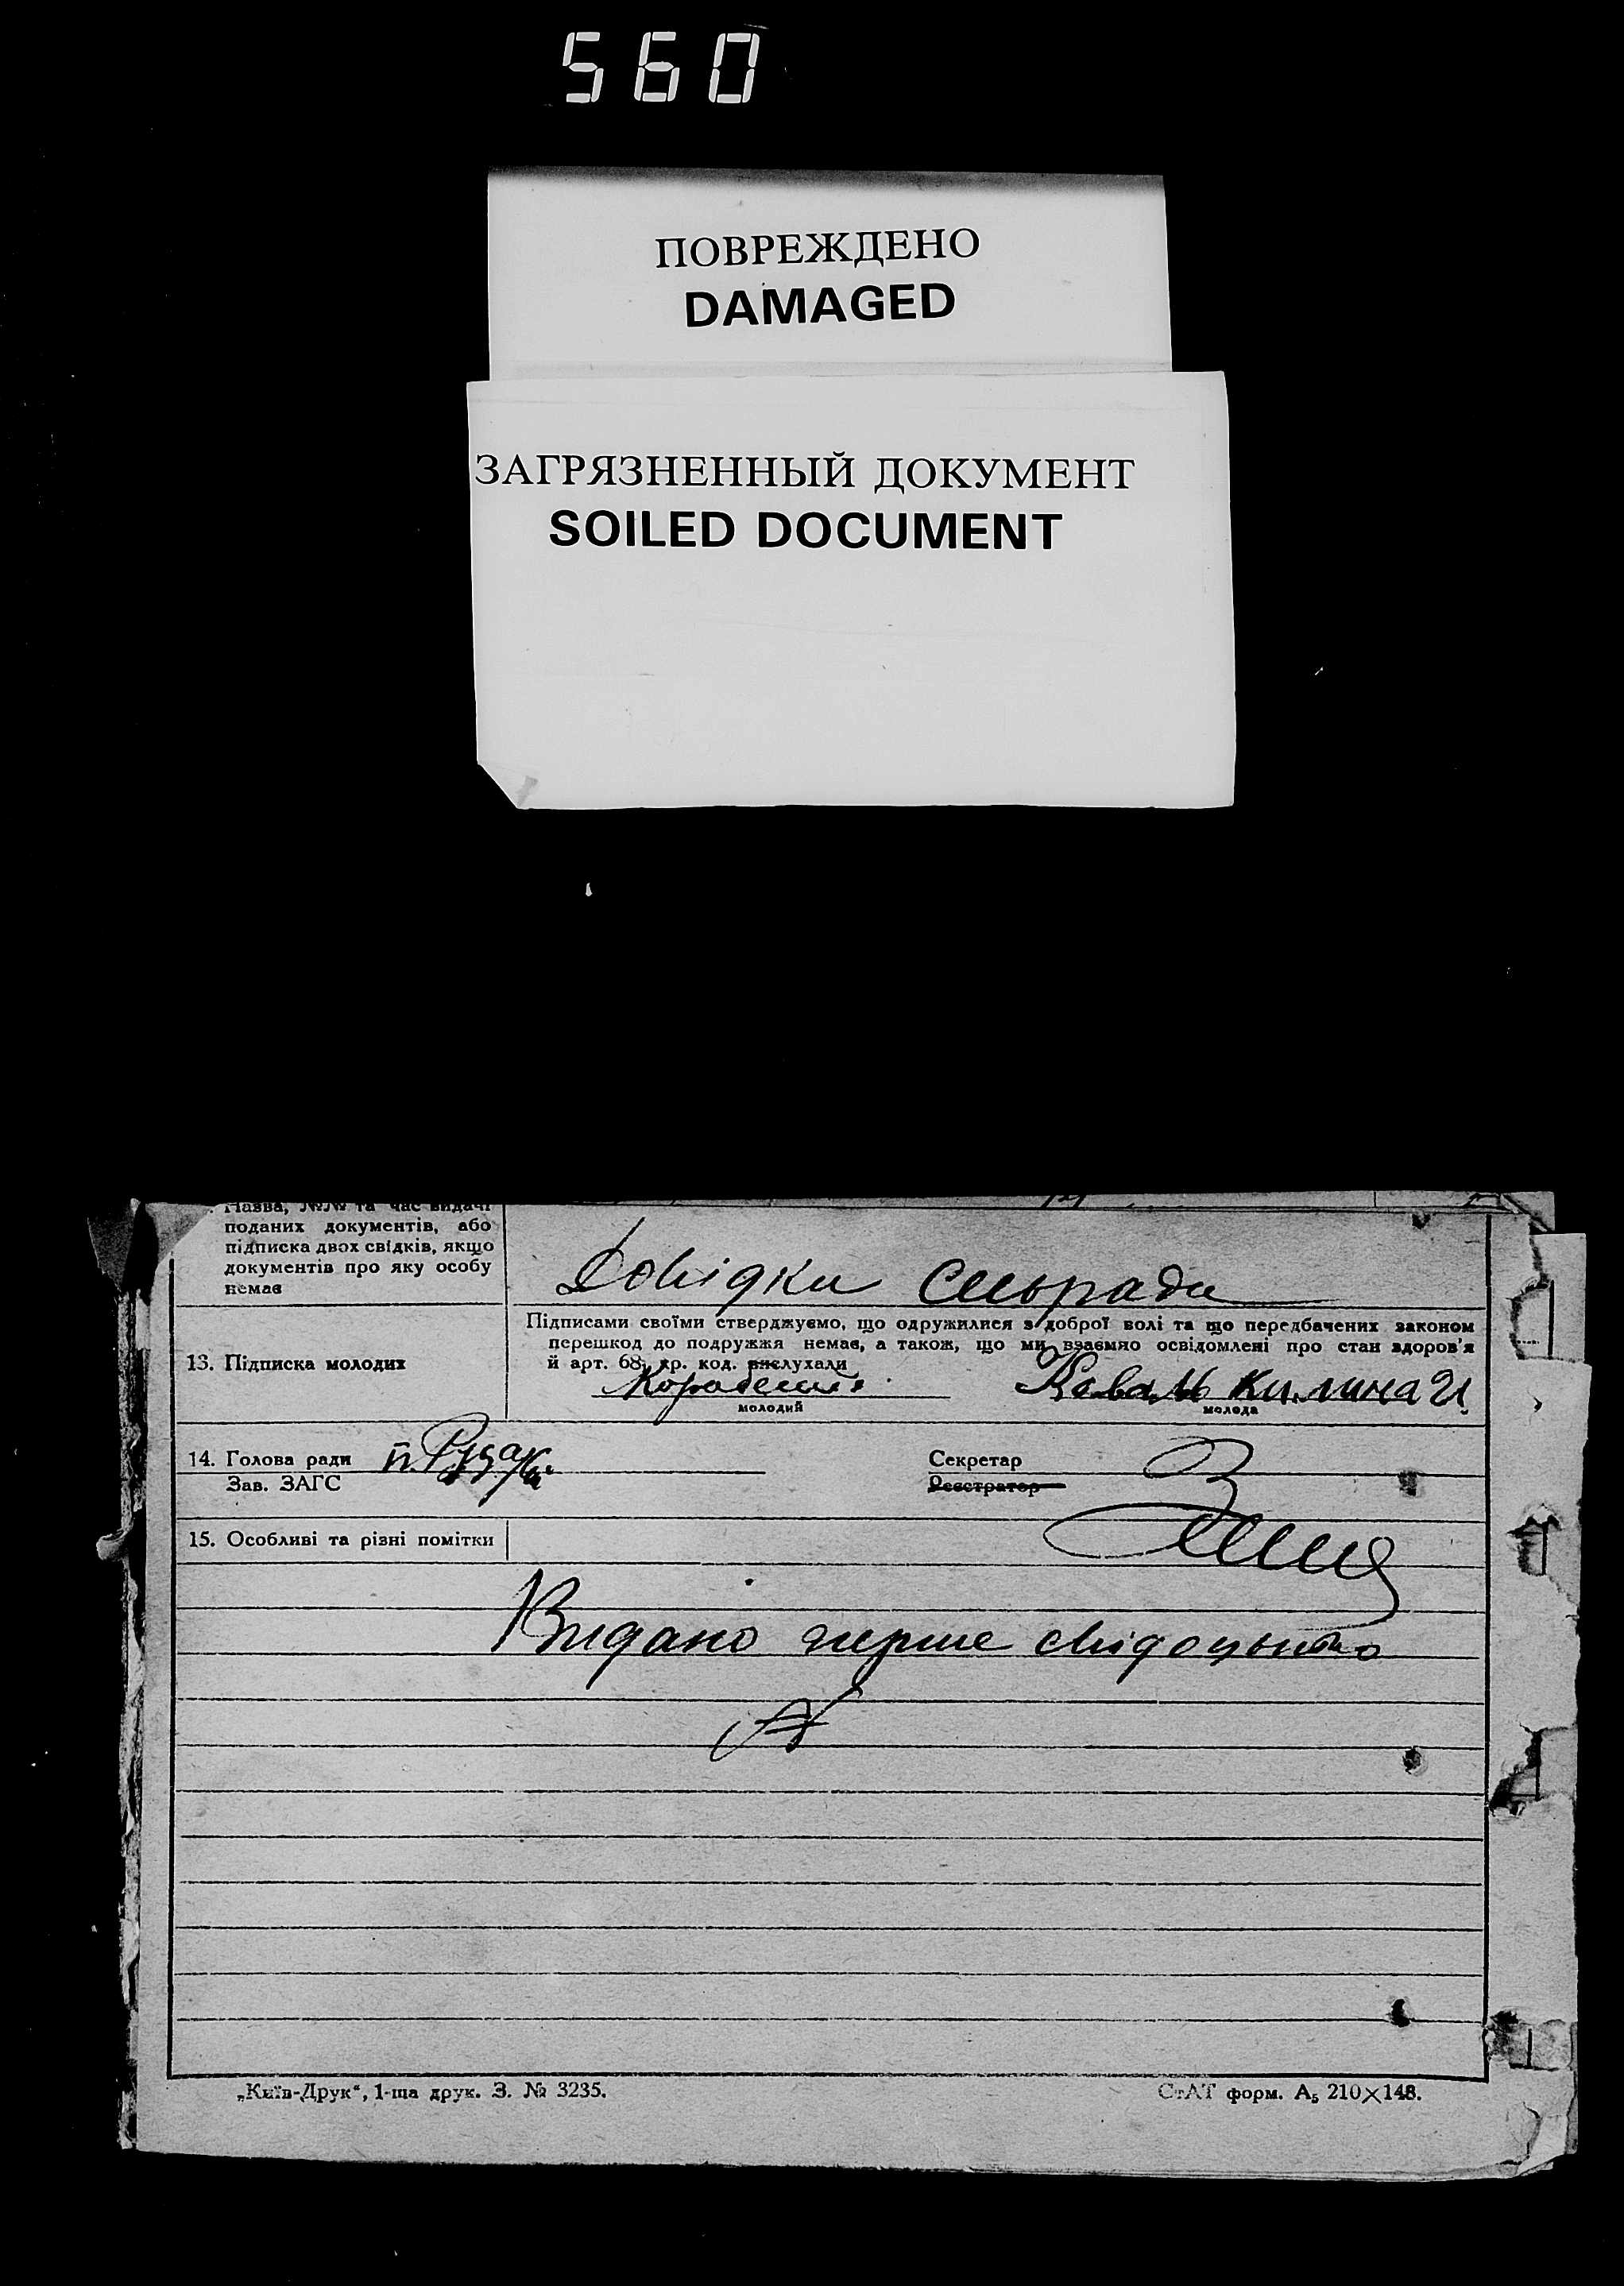 560
ПОВРЕЖДЕНО
DAMAGED
ЗАГРЯЗНЕННЫЙ ДОКУМЕНТ
SOILED DOCUMENT
Назва, №№ та час видачі
поданих документів, або
підписка двох свідків, якщо
документів про яку особу
немає
Довідки сільради
13. Підписка молодих
Підписами своїми стверджуємо, що одружилися з доброї волі та що передбачених законом
перешкод до подружжя немає, а також, що ми взаємно освідомлені про стан здоров'я
й арт. 68 кр. код. вислухали
молодий
молода
14. Голова ради
Зав. ЗАГС
Секретар
Реєстратор
15. Особливі та різні помітки
Видано перше свідоцтво
„Київ-Друк“, 1-ша друк. З. № 3235.
СтАТ форм. А5 210×148.